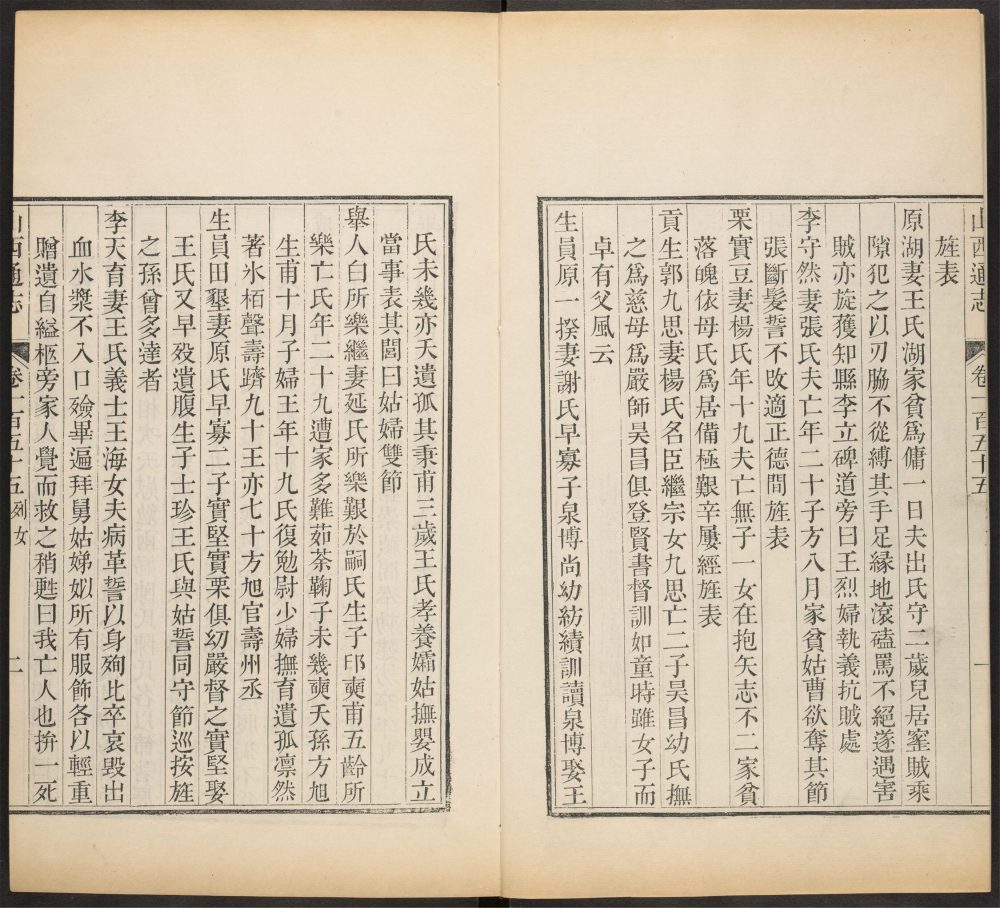 山西通志 卷一百五十五 一
旌表
原湖妻王氏湖家貧爲傭一日夫出氏守二歲兒居窰賊乘
隙犯之以刃脇不從縛其手足緣地滾磕罵不絕遂遇害
賊亦旋獲知縣李立碑道旁曰王烈婦執義抗賊處
李守然妻張氏夫亡年二十子方八月家貧姑曹欲奪其節
張斷髮誓不改適正德間旌表
栗實豆妻楊氏年十九夫亡無子一女在抱矢志不二家貧
落魄依母氏爲居備極艱辛屢經旌表
貢生郭九思妻楊氏名臣繼宗女九思亡二子昊昌幼氏撫
之爲慈母爲嚴師昊昌俱登賢書督訓如童時雖女子而
卓有父風云
生員原一揆妻謝氏早寡子泉博尚幼紡績訓讀泉博娶王
氏未幾亦夭遺孤其秉甫三歲王氏孝養孀姑撫嬰成立
當事表其閭曰姑婦雙節
舉人白所樂繼妻延氏所樂艱於嗣氏生子邵奭甫五齡所
樂亡氏年二十九遭家多難茹荼鞠子未幾奭夭孫方旭
生甫十月子婦王年十九氏復勉尉少婦撫育遺孤凛然
著氷栢聲壽躋九十王亦七十方旭官壽州丞
生員田墾妻原氏早寡二子實堅實栗俱幼嚴督之實堅娶
王氏又早歿遺腹生子士珍王氏與姑誓同守節巡按旌
之孫曾多達者
李天育妻王氏義士王海女夫病革誓以身殉比卒哀毀出
血水漿不入口殮畢遍拜舅姑娣姒所有服飾各以輕重
贈遺自縊柩旁家人覺而救之稍甦曰我亡人也拚一死
山西通志 卷一百五十五 列女 二